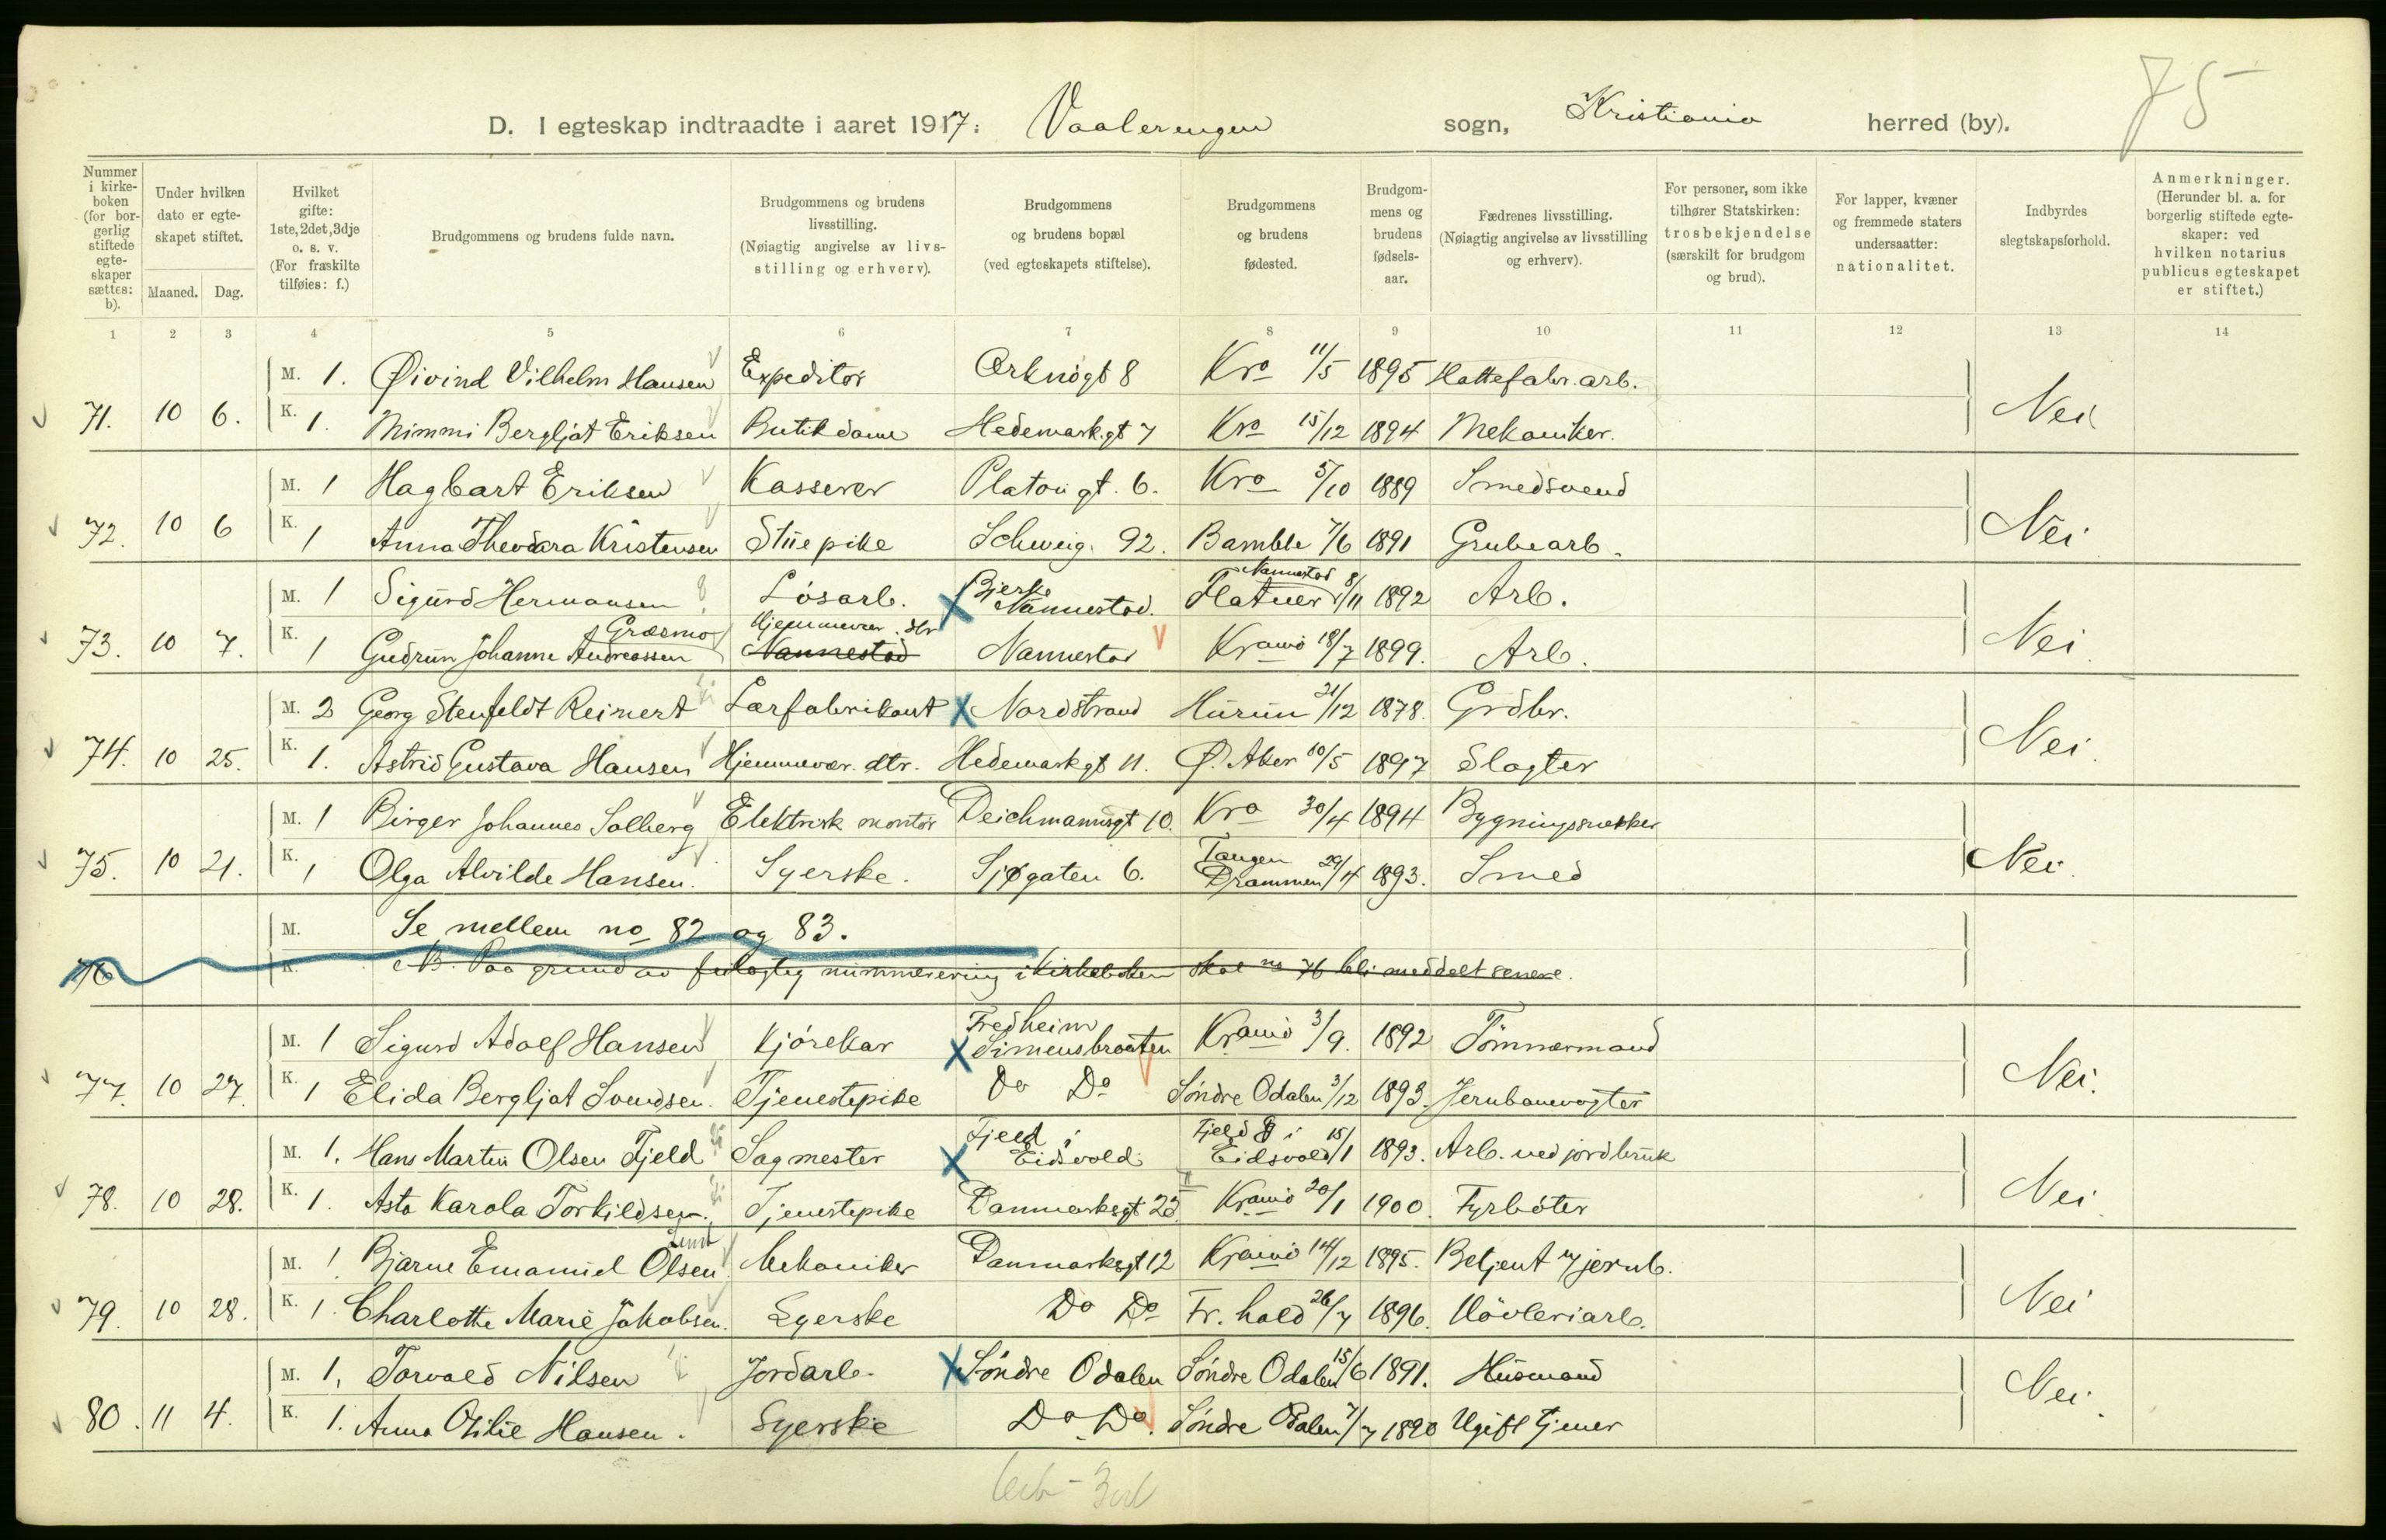 75
D. I egteskap indtraadte i aaret 1917: Vaalerengen sogn, Kristiania herred (by).
Nummer i kirkeboken (for borgerlig stiftede egteskaper sættes: b). Under hvilken dato er egteskapet stiftet. Maaned. Dag. Hvilket gifte: 1ste, 2det, 3dje o. s. v. (For fraskilte tilføies: f.) Brudgommens og brudens fulde navn. Brudgommens og brudens livsstilling. (Nøiagtig angivelse av livsstilling og erhverv). Brudgommens og brudens bopæl (ved egteskapets stiftelse). Brudgommens og brudens fødested. Brudgommens og brudens fødselsaar. Fædrenes livsstilling. (Nøiagtig angivelse av livsstilling og erhverv). For personer, som ikke tilhører Statskirken: trosbekjendelse (særskilt for brudgom og brud). For lapper, kvæner og fremmede staters undersaatter: nationalitet. Indbyrdes slegtskapsforhold. Anmerkninger. (Herunder bl. a. for borgerlig stiftede egteskaper: ved hvilken notarius publicus egteskapet er stiftet.)
1 2 3 4 5 6 7 8 9 10 11 12 13 14
M. 1. Øivind Vilhelm Hansen Expeditør Orknøgt 8 Kra 11/5 1895 Hattefabr. arb.
71. 10 6. K. 1. Mimmi Bergljot Eriksen Butikdame Hedemarkgt 7 Kra 15/12 1894 Mekaniker. Nei
M. 1 Hagbart Eriksen Kasserer Platougt. 6. Kra 5/10 1889 Smedsvend
72. 10 6 K. 1 Anna Theodora Kristensen Stuepike Schweig. 92. Bamble 7/6 1891 Grubearb. Nei
M. 1 Sigurd Hermansen Løsarb. Bjerke Nannestad. Nannestad Flatner 8/11 1892 Arb.
73. 10 7. K. 1 Gudrun Johanne Andreassen Græsmo Hjemmevær. dtr Nannestad Nannestad Kraniò 18/7 1899. Arb. Nei
M. 2 Georg Stenfeldt Reinert Lærfabrikant Nordstrand Hurum 21/12 1878. Grdbr.
74. 10 25. K. 1. Astrid Gustava Hansen Hjemmevær. dtr. Hedemarkgt 11. Ø. Aker 10/5 1897 Slagter Nei.
M. 1 Birger Johannes Solberg Elektrisk montør Deichmannsgt 10. Kra 30/4 1894 Bygningssnekker
75. 10 21. K. 1 Olga Alvilde Hansen. Syerske. Sjøgaten 6. Tangen Drammen 29/4 1893. Smed Nei.
M. Se mellem no 82 og 83.
76 K. NB. Paa grund av feilagtig nummerering i kirkeboken skal no 76 bli meddelt senere.
M. 1 Sigurd Adolf Hansen Kjørekar Fredheim Simensbraaten Kraniò 3/9. 1892 Tømmermand
77. 10 27. K. 1 Elida Bergljot Svendsen. Tjenestepike Do Do Søndre Odalen 3/12 1893. Jernbanevogter Nei.
M. 1. Hans Martin Olsen Fjeld Sagmester Fjeld i Eidsvold. Fjeld i Eidsvold 15/1 1893. Arb. ved jordbruk
78. 10 28. K. 1. Asta Karola Torkildsen. Tjenestepike Danmarksgt 23 Kraniò 20/1 1900. Fyrbøter Nei.
M. 1. Bjarne Emanuel Olsen Mekaniker Danmarksgt 12 Kraniò 14/12 1895. Betjent v/ jernb.
79. 10 28. K. 1. Charlotte Marie Jakobsen. Syerske Do Do Fr. hald 26/7 1896. Høvleriarb. Nei
M. 1. Torvald Nilsen Jordarb. Søndre Odalen Søndre Odalen 15/6 1891. Husmand
80. 11 4. K. 1. Anna Otilie Hansen. Syerske Do Do. Søndre Odalen 7/7 1890 Ugift tjener Nei.